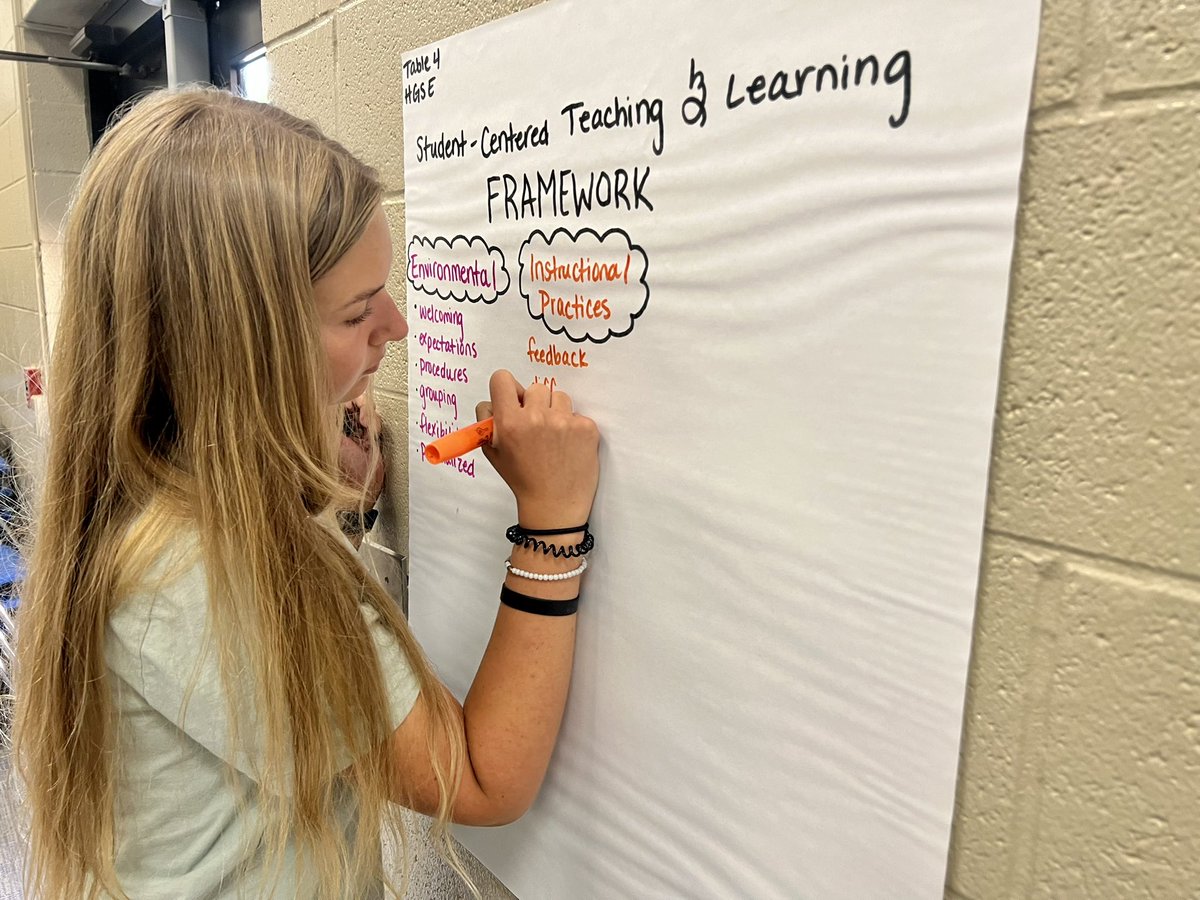 Table 4
HGSE
Student-Centered Teaching & Learning
FRAMEWORK
Environmental
• welcoming
• expectations
• procedures
• grouping
Instructional
Practices
feedback
diff